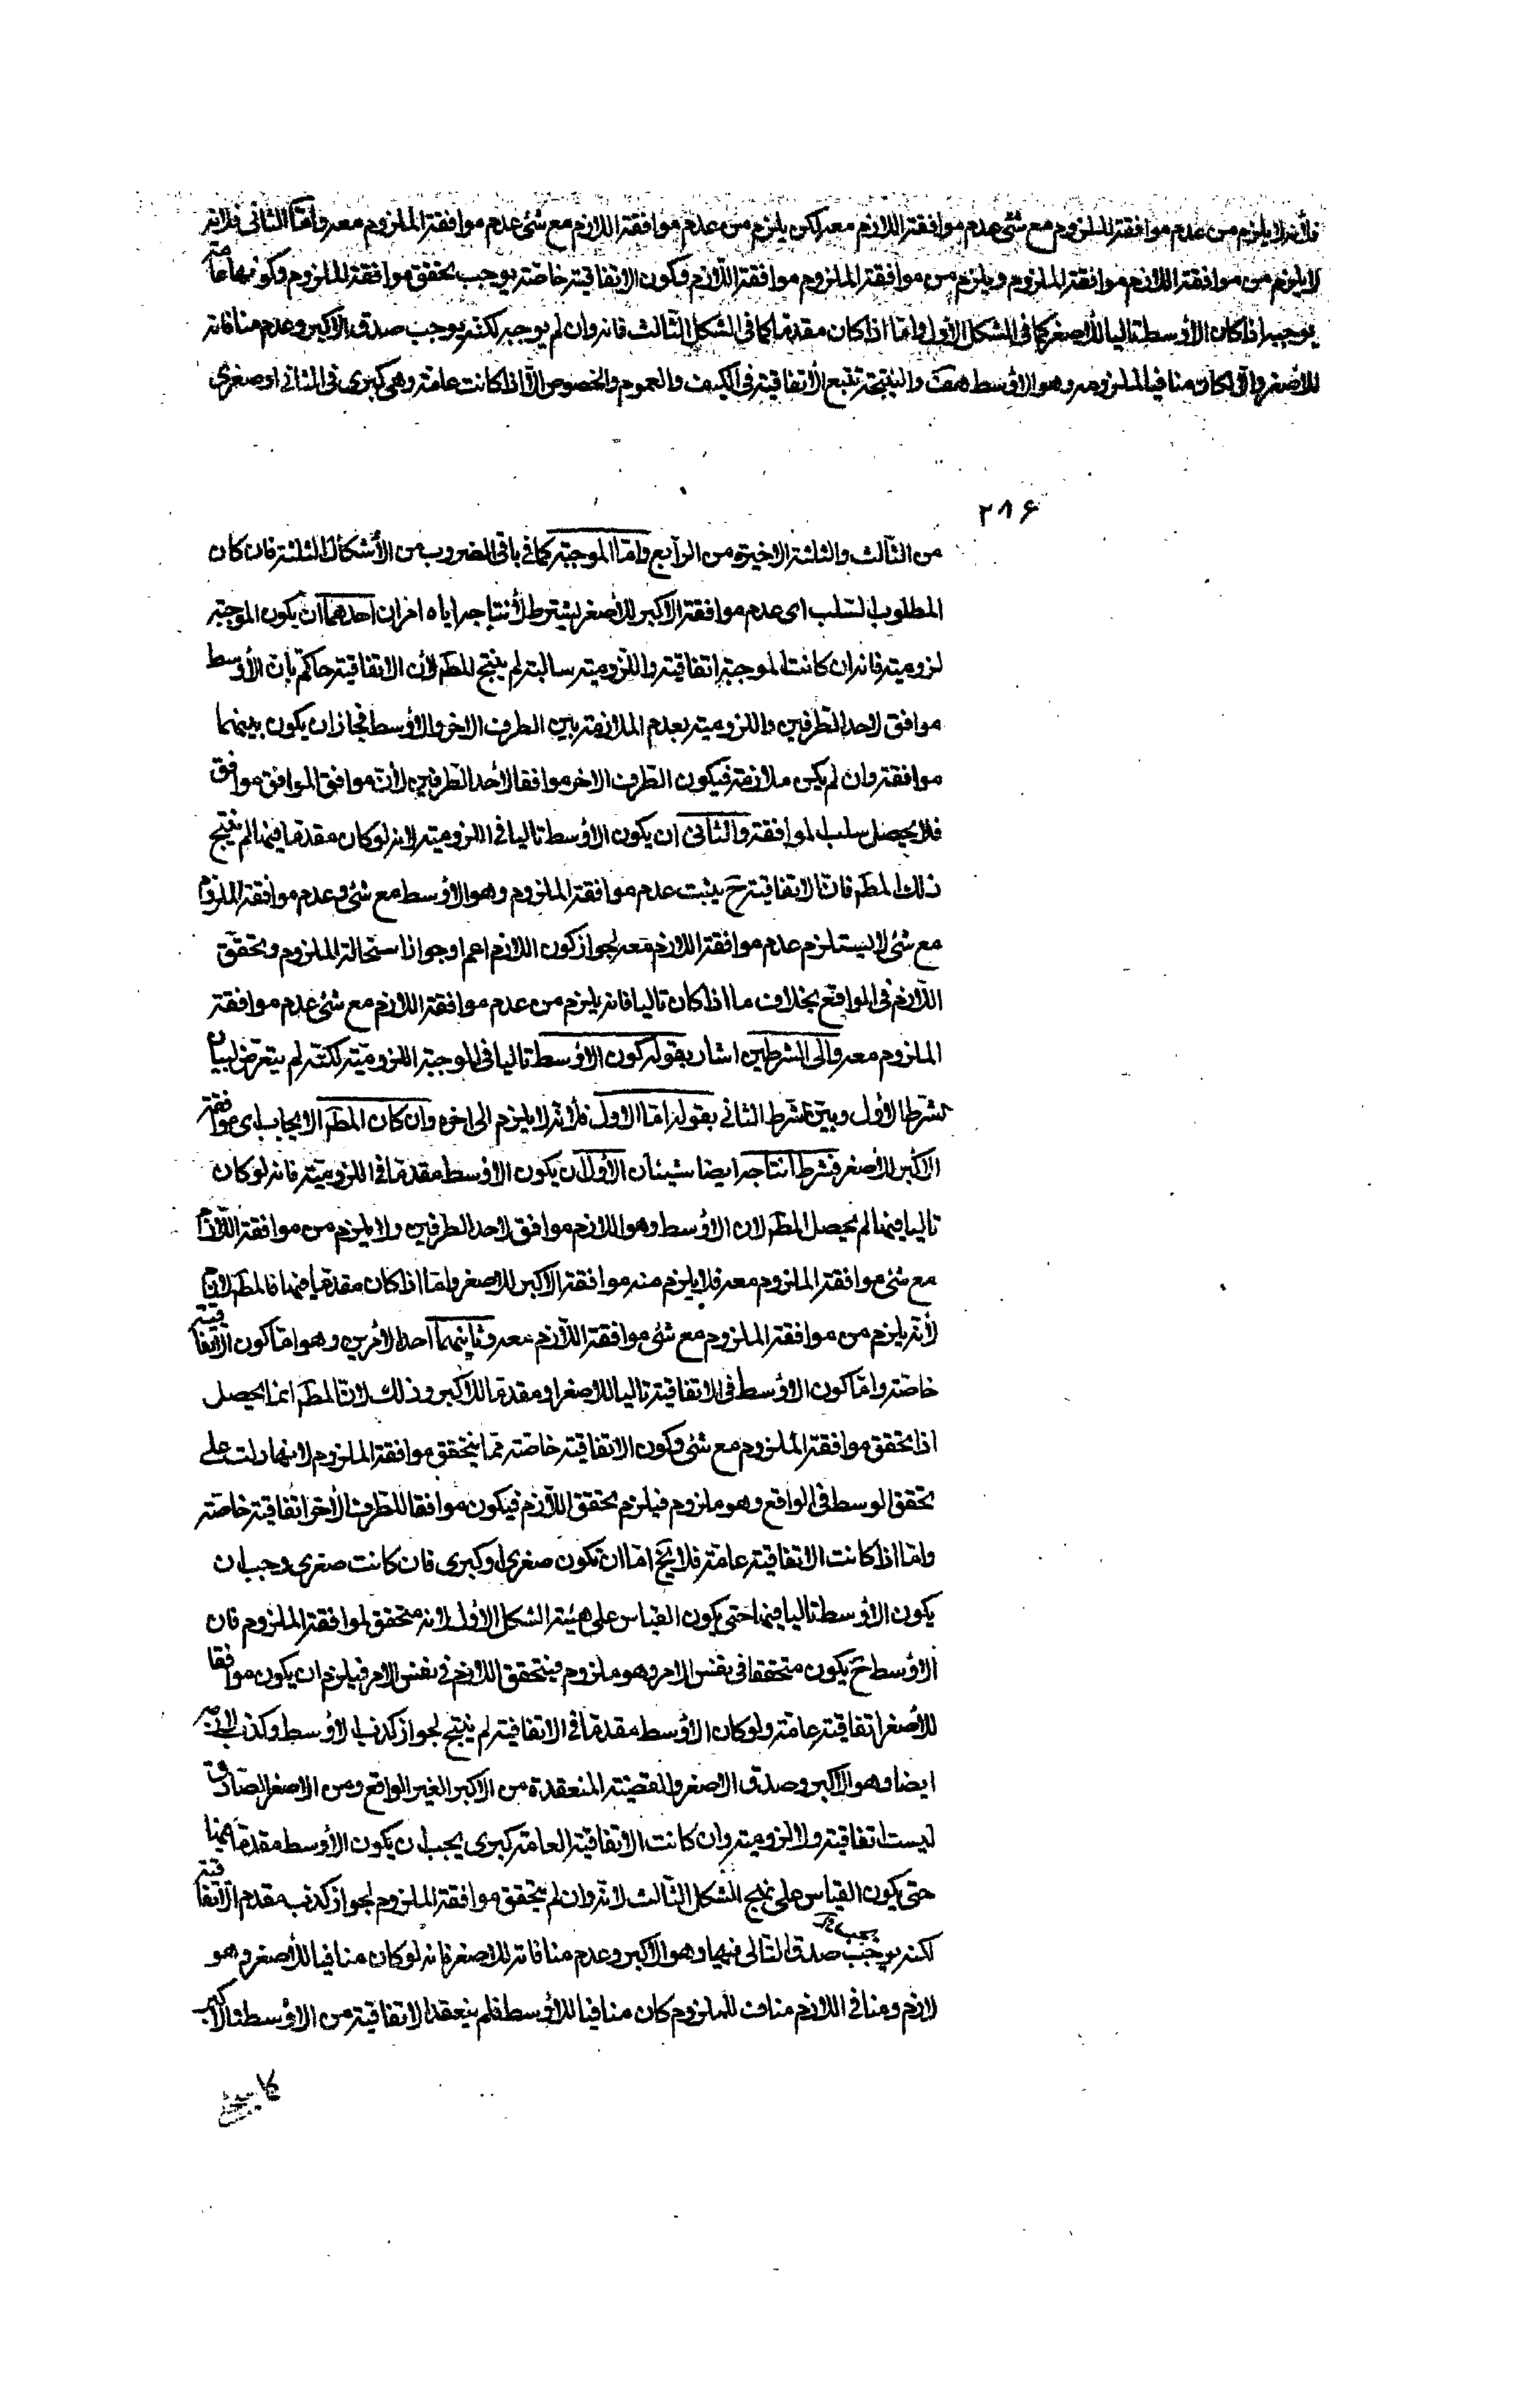 فلأنه لا يلزم من عدم موافقة الملزوم مع شئ عدم موافقة اللازم معه لكن يلزم من عدم موافقة اللازم مع شئ عدم موافقة الملزوم معه وامّا الثانى فلانه
لا يلزم من موافقة اللازم موافقة الملزوم ويلزم من موافقة الملزوم موافقة اللازم وكون الاتفاقية خاصّة يوجب تحقق موافقة الملزوم وكونها عامّة
يوجبه اذا كان الأوسط تاليا للأصغر كما فى الشكل الأول وامّا اذا كان مقدما كما فى الشكل الثالث فانه وان لم يوجبه لكنه يوجب صدق الاكبر وعدم منافاته
للأصغر والّا لكان منافيا لملزومه وهو الاوسط هف والنتيجة تتبع الأتفاقية فى الكيف والعموم والخصوص الّا اذا كانت عامة وهى كبرى فى الثانى او صغرى
٢٨۶
من الثالث والثلثة الاخيرة من الرابع وامّا الموجبة كما فى باقى الضروب من الأشكال الثلثة فان كان
المطلوب السّلب اى عدم موافقة الاكبر للأصغر يشترط لأنتاجه اياه امران احدهما ان يكون الموجبة
لزومية فانه ان كانت الموجبة اتفاقية واللزومية سالبة لم ينتج للمطم لأن الاتفاقية حاكمة بان الأوسط
موافق لاحد الطرفين واللزومية بعدم الملازمة بين الطرف الاخر والأوسط فجاز ان يكون بينهما
موافقة وان لم يكن ملازمة فيكون الطرف الاخر موافقا لأحد الطرفين لأن موافق الموافق موافق
فلا يحصل سلب الموافقة والثانى ان يكون الأوسط تاليا فى اللزومية لانه لو كان مقدما فيها لم ينتج
ذلك المطم فان الاتفاقية ح يثبت عدم موافقة الملزوم وهو الاوسط مع شئ وعدم موافقة الملزوم
مع شئ لا يستلزم عدم موافقة اللازم معه لجواز كون اللازم اعم او جواز استحالة الملزوم وتحقق
اللّازم فى الواقع بخلاف ما اذا كان تاليا فانه يلزم من عدم موافقة اللازم مع شئ عدم موافقة
الملزوم معه والى الشرطين اشار بقوله كون الاوسط تاليا فى الموجبة اللزوميّة لكنّه لم يتعرّض لبيان
الشرط الأول وبيّن الشرط الثانى بقوله امّا الاول فلأنّه لا يلزم الى اخره وان كان المطم الايجاب اى موافقة
الاكبر للأصغر فشرط انتاجه ايضا شيئان الأول ان يكون الاوسط مقدما فى اللزوميّة فانه لو كان
تاليا فيها لم يحصل المطم لان الأوسط وهو اللازم موافق لاحد الطرفين ولا يلزم من موافقة اللّازم
مع شئ موافقة الملزوم معه فلا يلزم منه موافقة الاكبر للاصغر وامّا اذا كان مقدما فيها فالمطم لازم
لأنه يلزم من موافقة الملزوم مع شئ موافقة اللّازم معه وثانيهما احد الأمرين وهو امّا كون الاتّفاقية
خاصّة وامّا كون الاوسط فى الاتفاقية تاليا للاصغر او مقدما للاكبر وذلك لان المطم انما يحصل
اذا تحقق موافقة الملزوم مع شئ وكون الاتفاقية خاصّة ممّا يتحقق موافقة الملزوم لانها دلت على
تحقق الوسط فى الواقع وهو ملزوم فيلزم تحقق اللّازم فيكون موافقا للطرف الأخر اتفاقية خاصّة
وامّا اذا كانت الاتفاقية عامّة فلا يخ امّا ان تكون صغرى او كبرى فان كانت صغرى وجب ان
يكون الأوسط تاليا فيها حتى يكون القياس على هيئة الشكل الأول لانه متحقق لموافقة الملزوم فان
الأوسط ح يكون متحققا فى نفس الامر وهو ملزوم فيتحقق اللازم فى نفس الامر فيلزم ان يكون موافقا
للأصغر اتفاقية عامّة ولو كان الأوسط مقدما فى الاتفاقية لم ينتج لجواز كذب الاوسط وكذب
ايضا وهو الاكبر وصدق الاصغر والقضيّة المنعقدة من الاكبر الغير الواقع ومن الاصغر الصّادق
ليست اتفاقية ولا لزومية وان كانت الاتفاقية العامة كبرى يجب ان يكون الأوسط مقدما فيها
حتى يكون القياس على نهج الشكل الثالث لانّه وان لم يتحقق موافقة الملزوم لجواز كذب مقدم الاتّفاقية
لكنه يوجب صدق التالى فيها وهو الاكبر وعدم منافاته للاصغر فانه لو كان منافيا للأصغر وهو
لازم ومنافى اللازم مناف للملزوم كان منافيا للأوسط فلم ينعقد الاتفاقية من الاوسط والاكبر